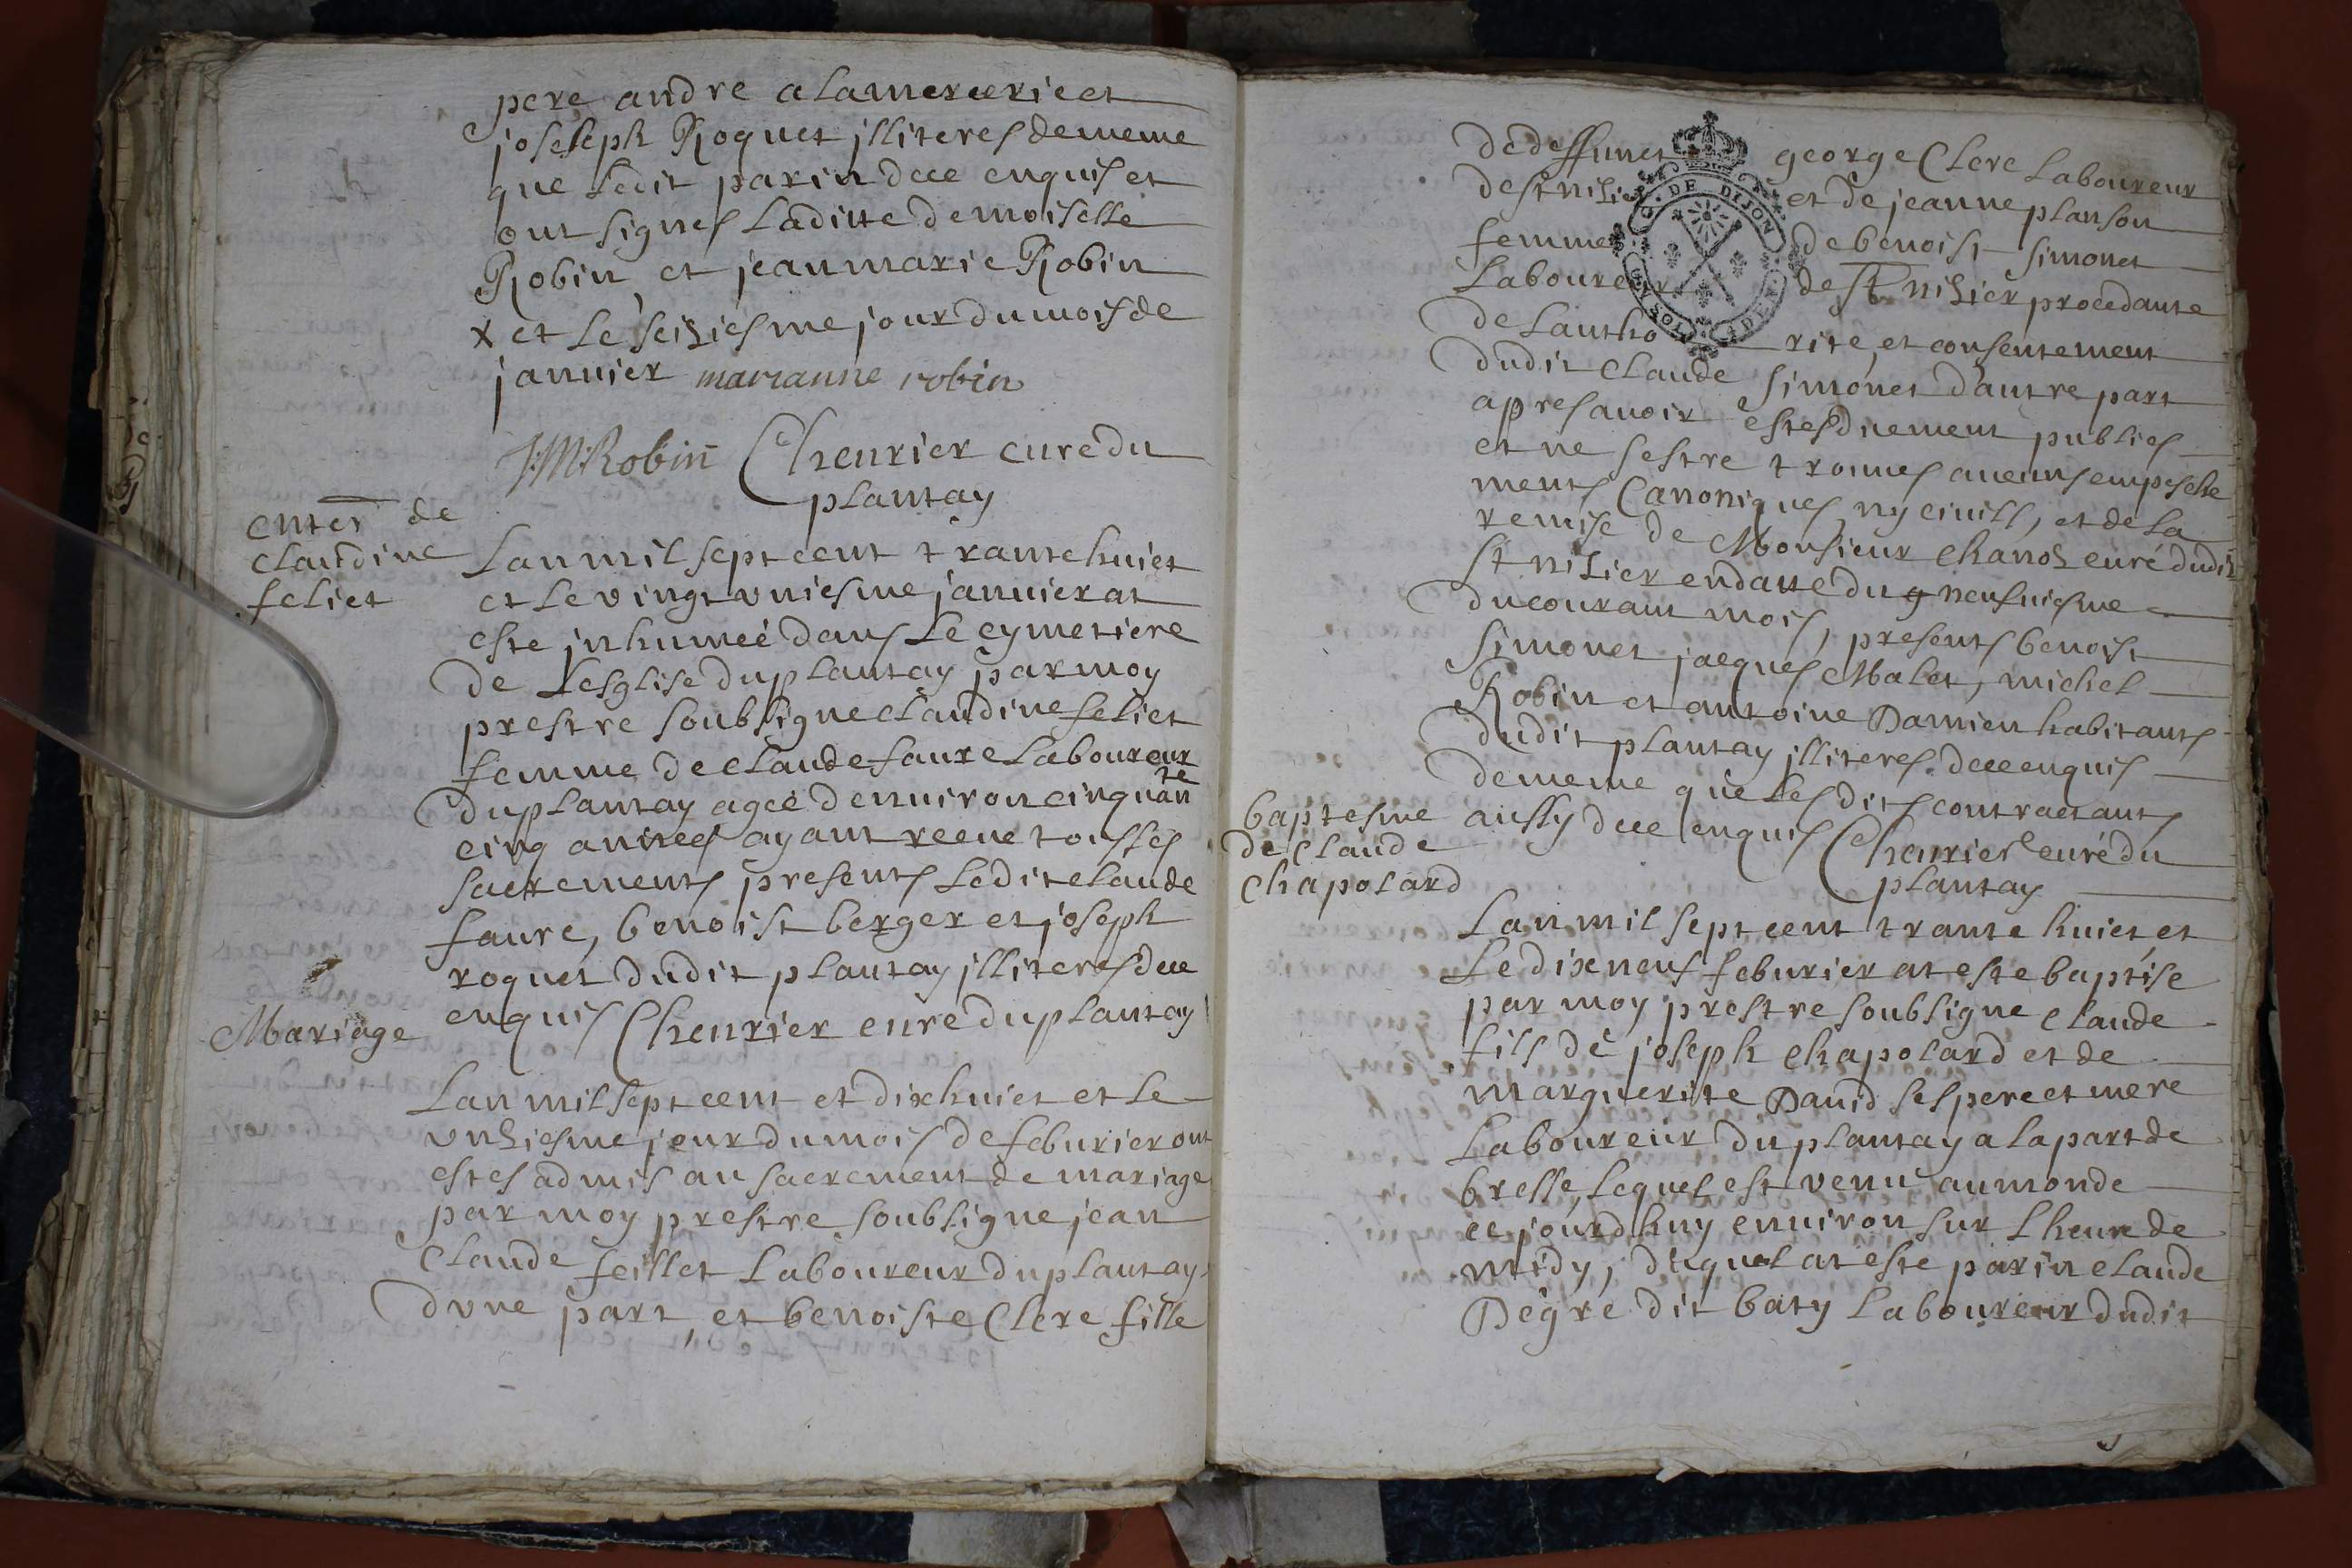 pere andre alamercerie et
joseseph Roquet jlliteres de meme
que ledit parin dece enquis et
ont signes laditte demoiselle
Robin et jean marie Robin
x et le seiziesme jour du mois de
janvier marianne robin
J:M:Robin Cheurier cure du
plantay
enter de
claudine
feliet
Lan mil sept cent trante huict
et le vingt vniesme januier at
este jnhumeé dans le cymetiere
de Lesglise du plantay par moy
prestre soubsigne claudine feliet
femme de claude faure laboureur
du plantay ageé denuiron cinquan
te
cinq anneés ayant receue tous les
sacrements presents ledit claude
faure, benoist berger et joseph
roquet dudit plantay jlliteres dece
enquis Cheurier cure du plantay
Mariage
Lan mil sept cent et dixhuict et le
vnziesme jour du mois de feburier ont
estes admis au sacrement de mariage
par moy prestre soubsigne jean
Claude feillet laboureur du plantay
dvne part, et benoiste Clere fille
de deffunct george Clere laboureur
de st nisier et de jeanne planson
femme de benoist simonet
Laboureur de st nizier procedante
de lautho rité, et consentement
dudit claude simonet dautre part
apres auoir estes duement publies
et ne sestre trouues aucuns empesche
ments Canoniques, ny ciuills, et de la
remise de Monsieur chanoz curé dudit
st nizier en datte du 9 neufuiesme
du courant mois, presents benoist
simonet jacques Malet, michel
Robin et antoine Damien habitants
dudit plantay jlliteres dece enquis
de meme que lesdits contractants
aussy dece enquis Cheurier curé du
plantay
baptesme
de Claude
Chapolard
Lan mil sept cent trante huict et
le dixneuf feburier at este baptise
par moy prestre soubsigne claude
fils de joseph chapolard et de
marguerite Dauid ses pere et mere
Laboureur du plantay a la part de
bresse, lequel est venu au monde
ce jourdhuy enuiron sur lheure de
midy, duquel at este parin claude
Degre dit baty laboureur dudit
G. DE DIJON